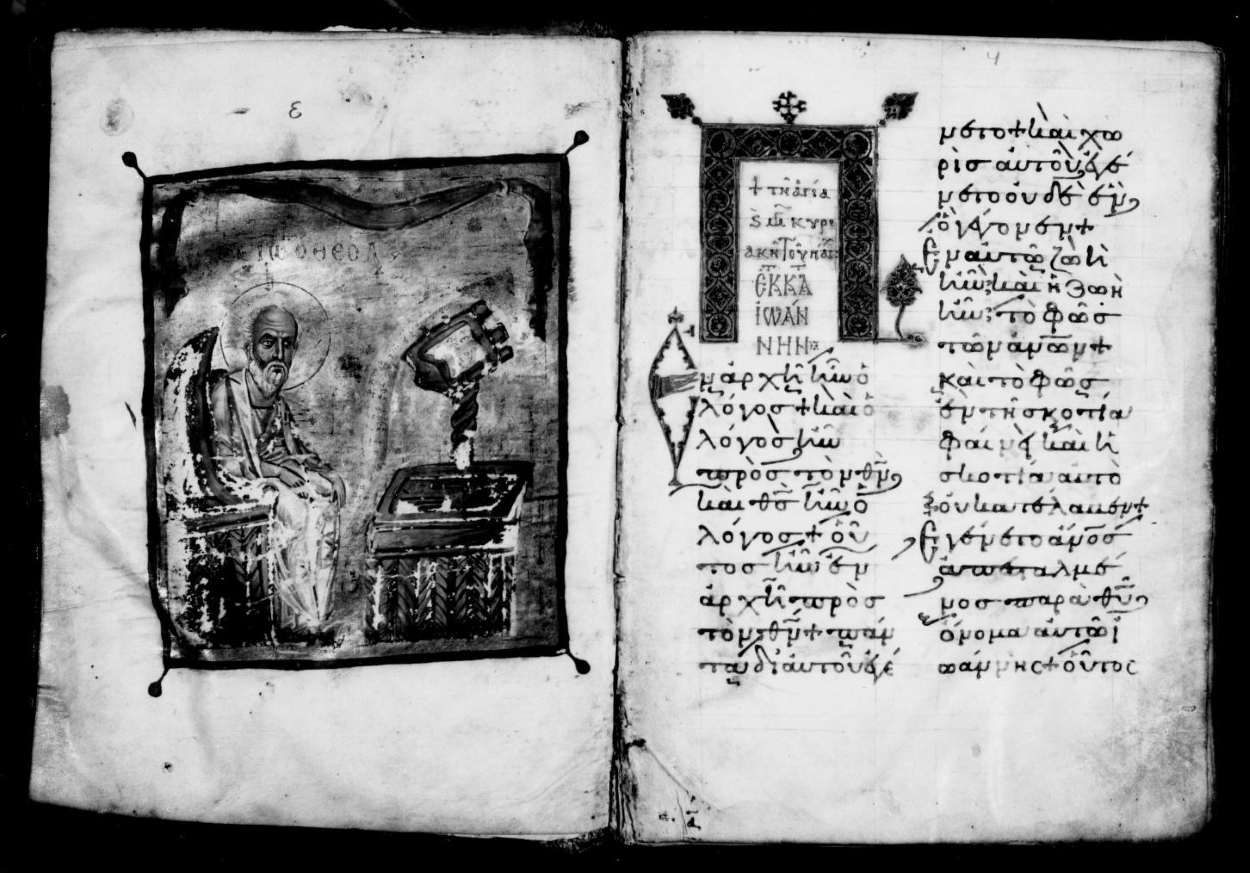 ε
Ο ΘΕΟΛ
4
+ τῇ ἁγία
κυρι
ακῇ τοῦ πάσχ
ἐκ κατὰ
ἰωάν
νην
Ἐν ἀρχῇ ἦν ὁ
λόγος + καὶ ὁ
λόγος ἦν
πρὸς τὸν θν̅,
καὶ θς̅ ἦν ὁ
λόγος + οὗ
τος ἦν ἐν
ἀρχῇ πρὸς
τὸν θν̅ + πάν
τα δι αὐτοῦ ἐγέ
νετο + καὶ χω
ρὶς αὐτοῦ ἐγέ
νετο οὐδὲ ἓν,
ὃ γέγονεν +
Ἐν αὐτῶ ζωὴ
ἦν· καὶ ἡ ζωὴ
ἦν· τὸ φῶς
τῶν ανω̅ν +
καὶ τὸ φῶς
ἐν τῇ σκοτία
φαίνει καὶ ἡ
σκοτία αὐτὸ
οὐ κατέλαβεν +
Ἐγένετο ανο̅ς
ἀπεσταλμέ
νος παρὰ θυ̅,
ὄνομα αὐτῶ ἰ
ωάννης + οὗτος